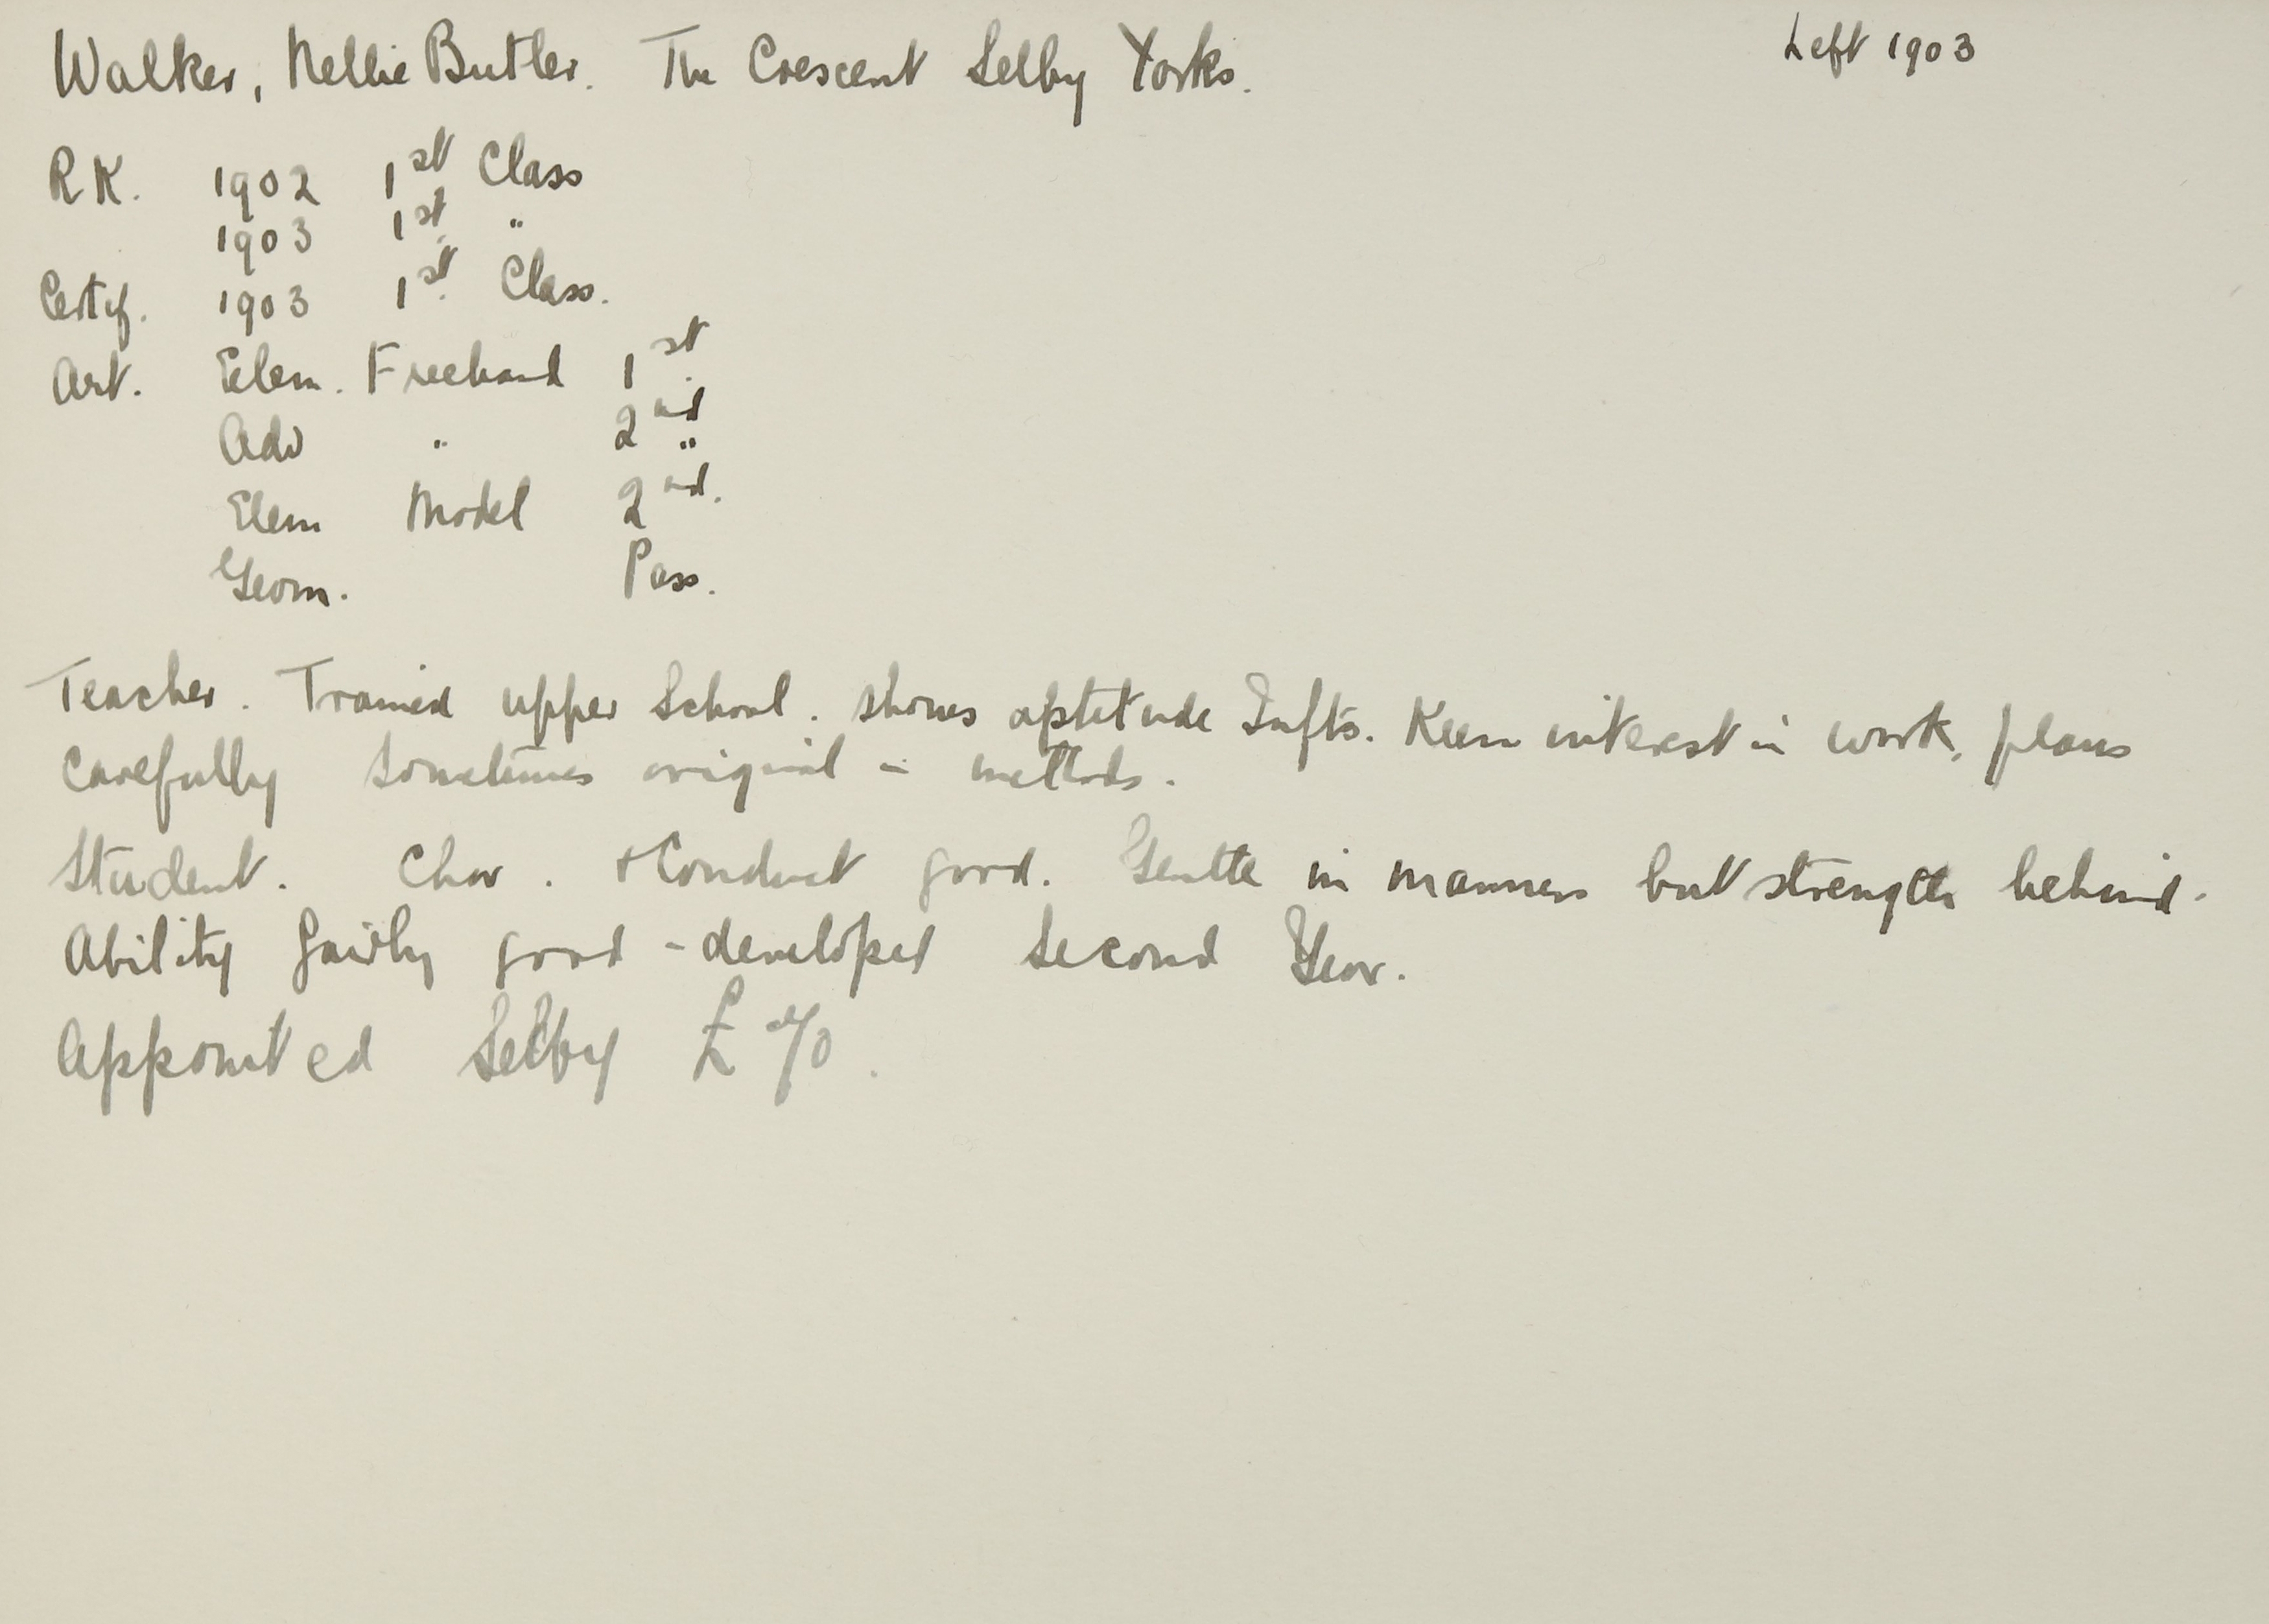 Walker, Nellie Butler. The Crescent Selby Yorks. Left 1903
R.K. 1902 1st Class
1903 1st "
Certif. 1903 1st Class.
Art. Elem. Freehand 1st
Adv " 2nd "
Elem Model 2nd.
Geom. Pass.
Teacher. Trained upper School. shows aptitude Infts. Keen interest in work, plans
carefully sometimes original in methods.
Student. Char. + Conduct good. Gentle in manners but strength behind.
Ability fairly good - developed Second Year.
Appointed Selby £70.